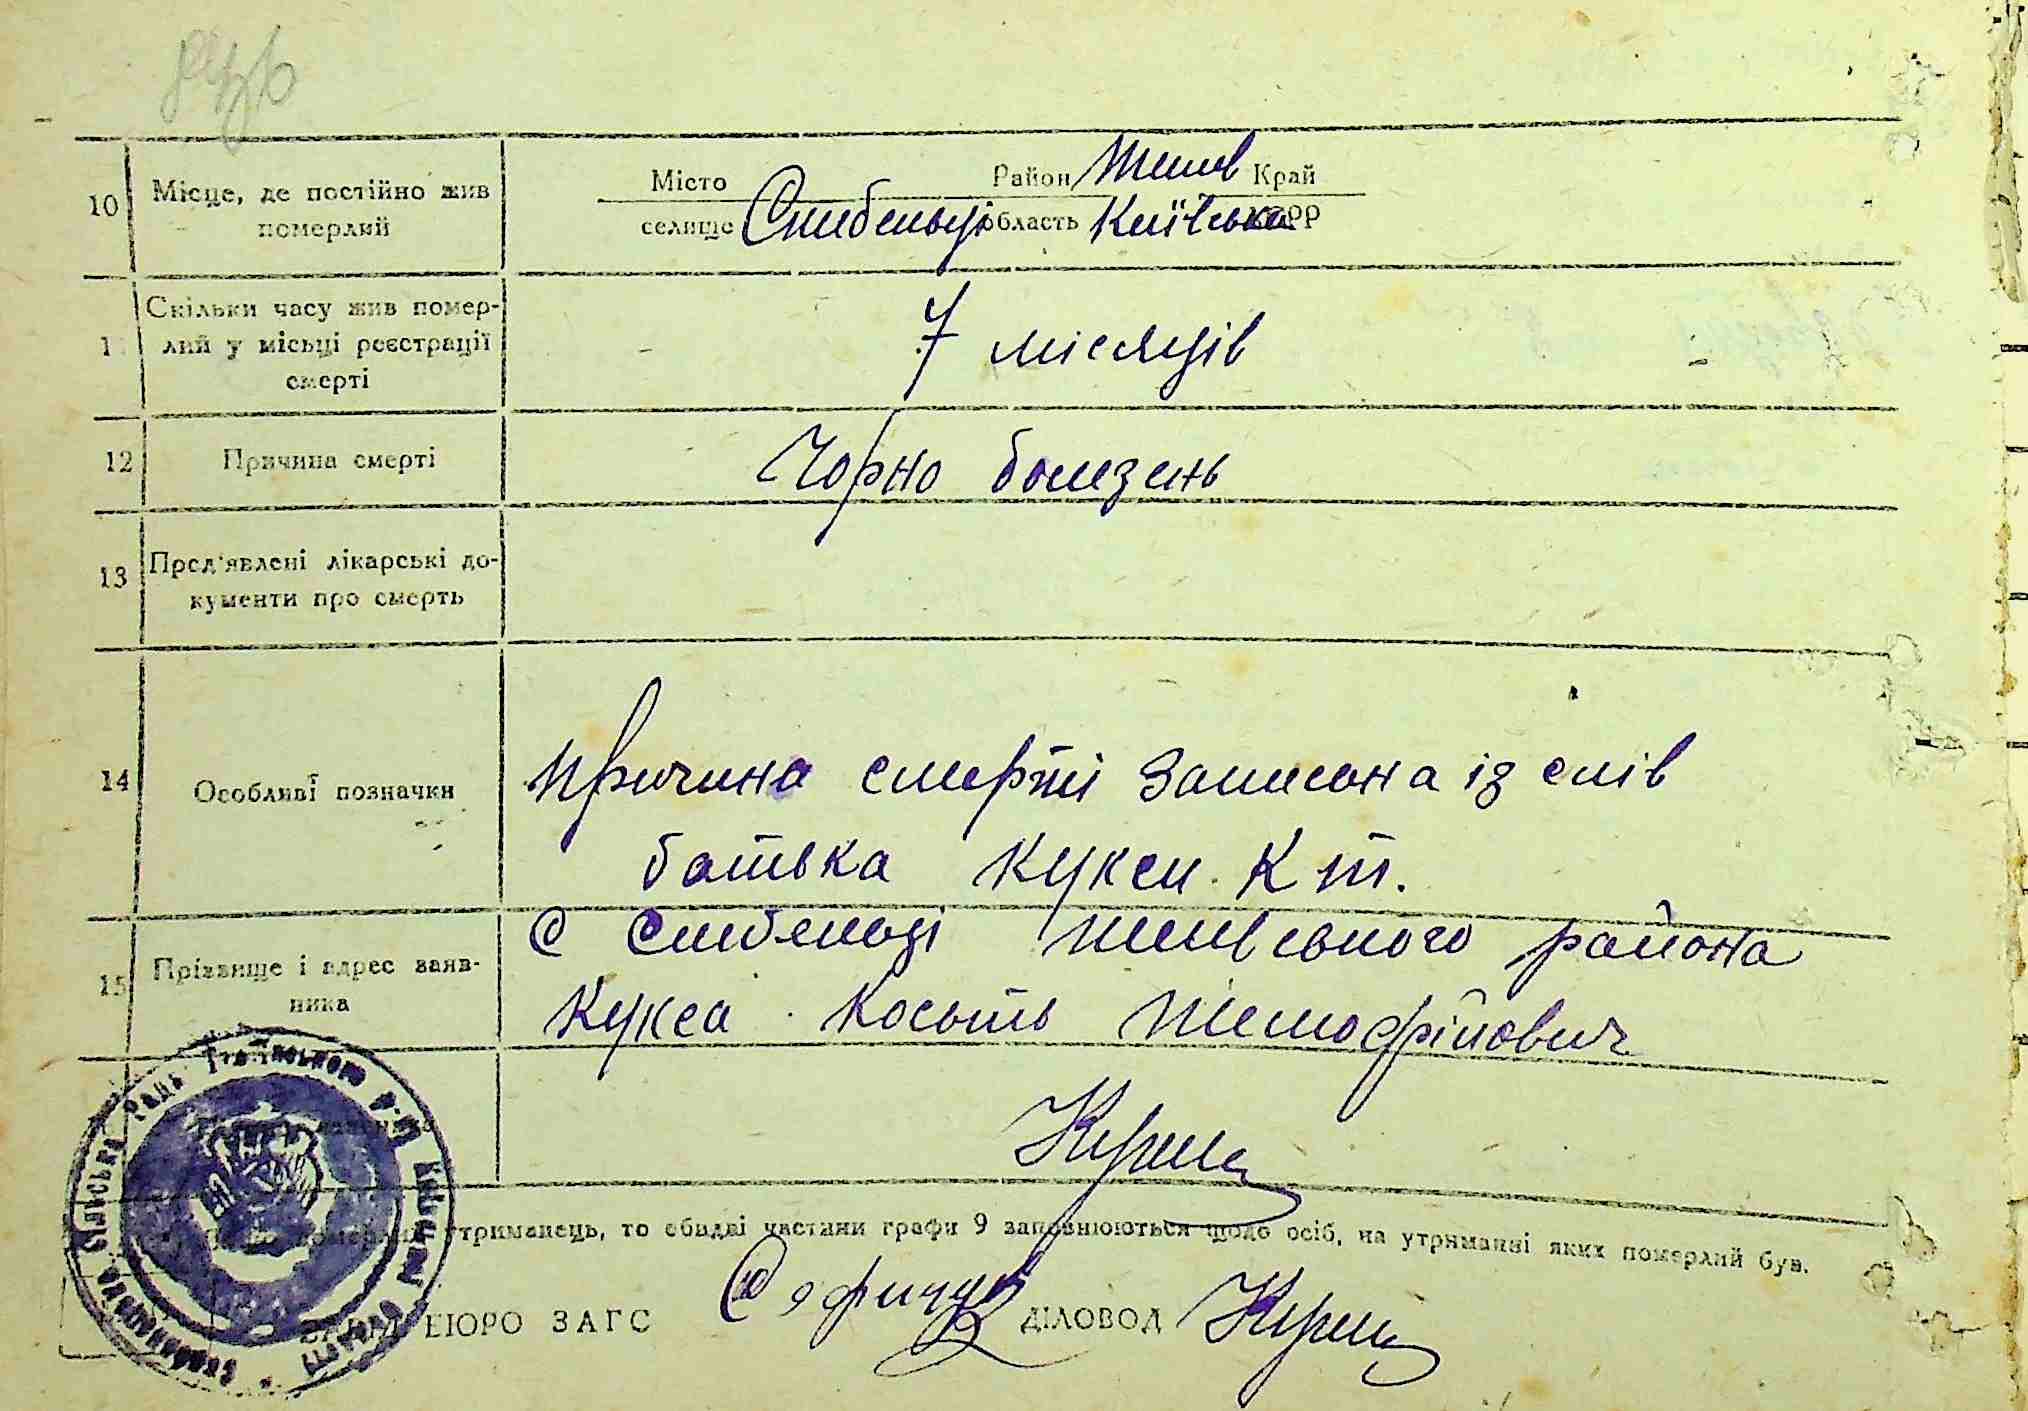 10 Місце, де постійно жив померлий
Місто Район Тетиїв Край
селище область Київська УСРР
11 Скільки часу жив померлий у місьці реєстрації смерті
7 місяців
12 Причина смерті
Чорно болезень
13 Пред'явлені лікарські документи про смерть
14 Особливі позначки
причина смерті записона із слів
батька Кукси К Т.
15 Прізвище і адрес заявника
с района
Кукса Кость Тімофійович
утриманець, то обидві частини графи 9 заповнюються щодо осіб, на утриманні яких померлий був.
БЮРО ЗАГС ДІЛОВОД